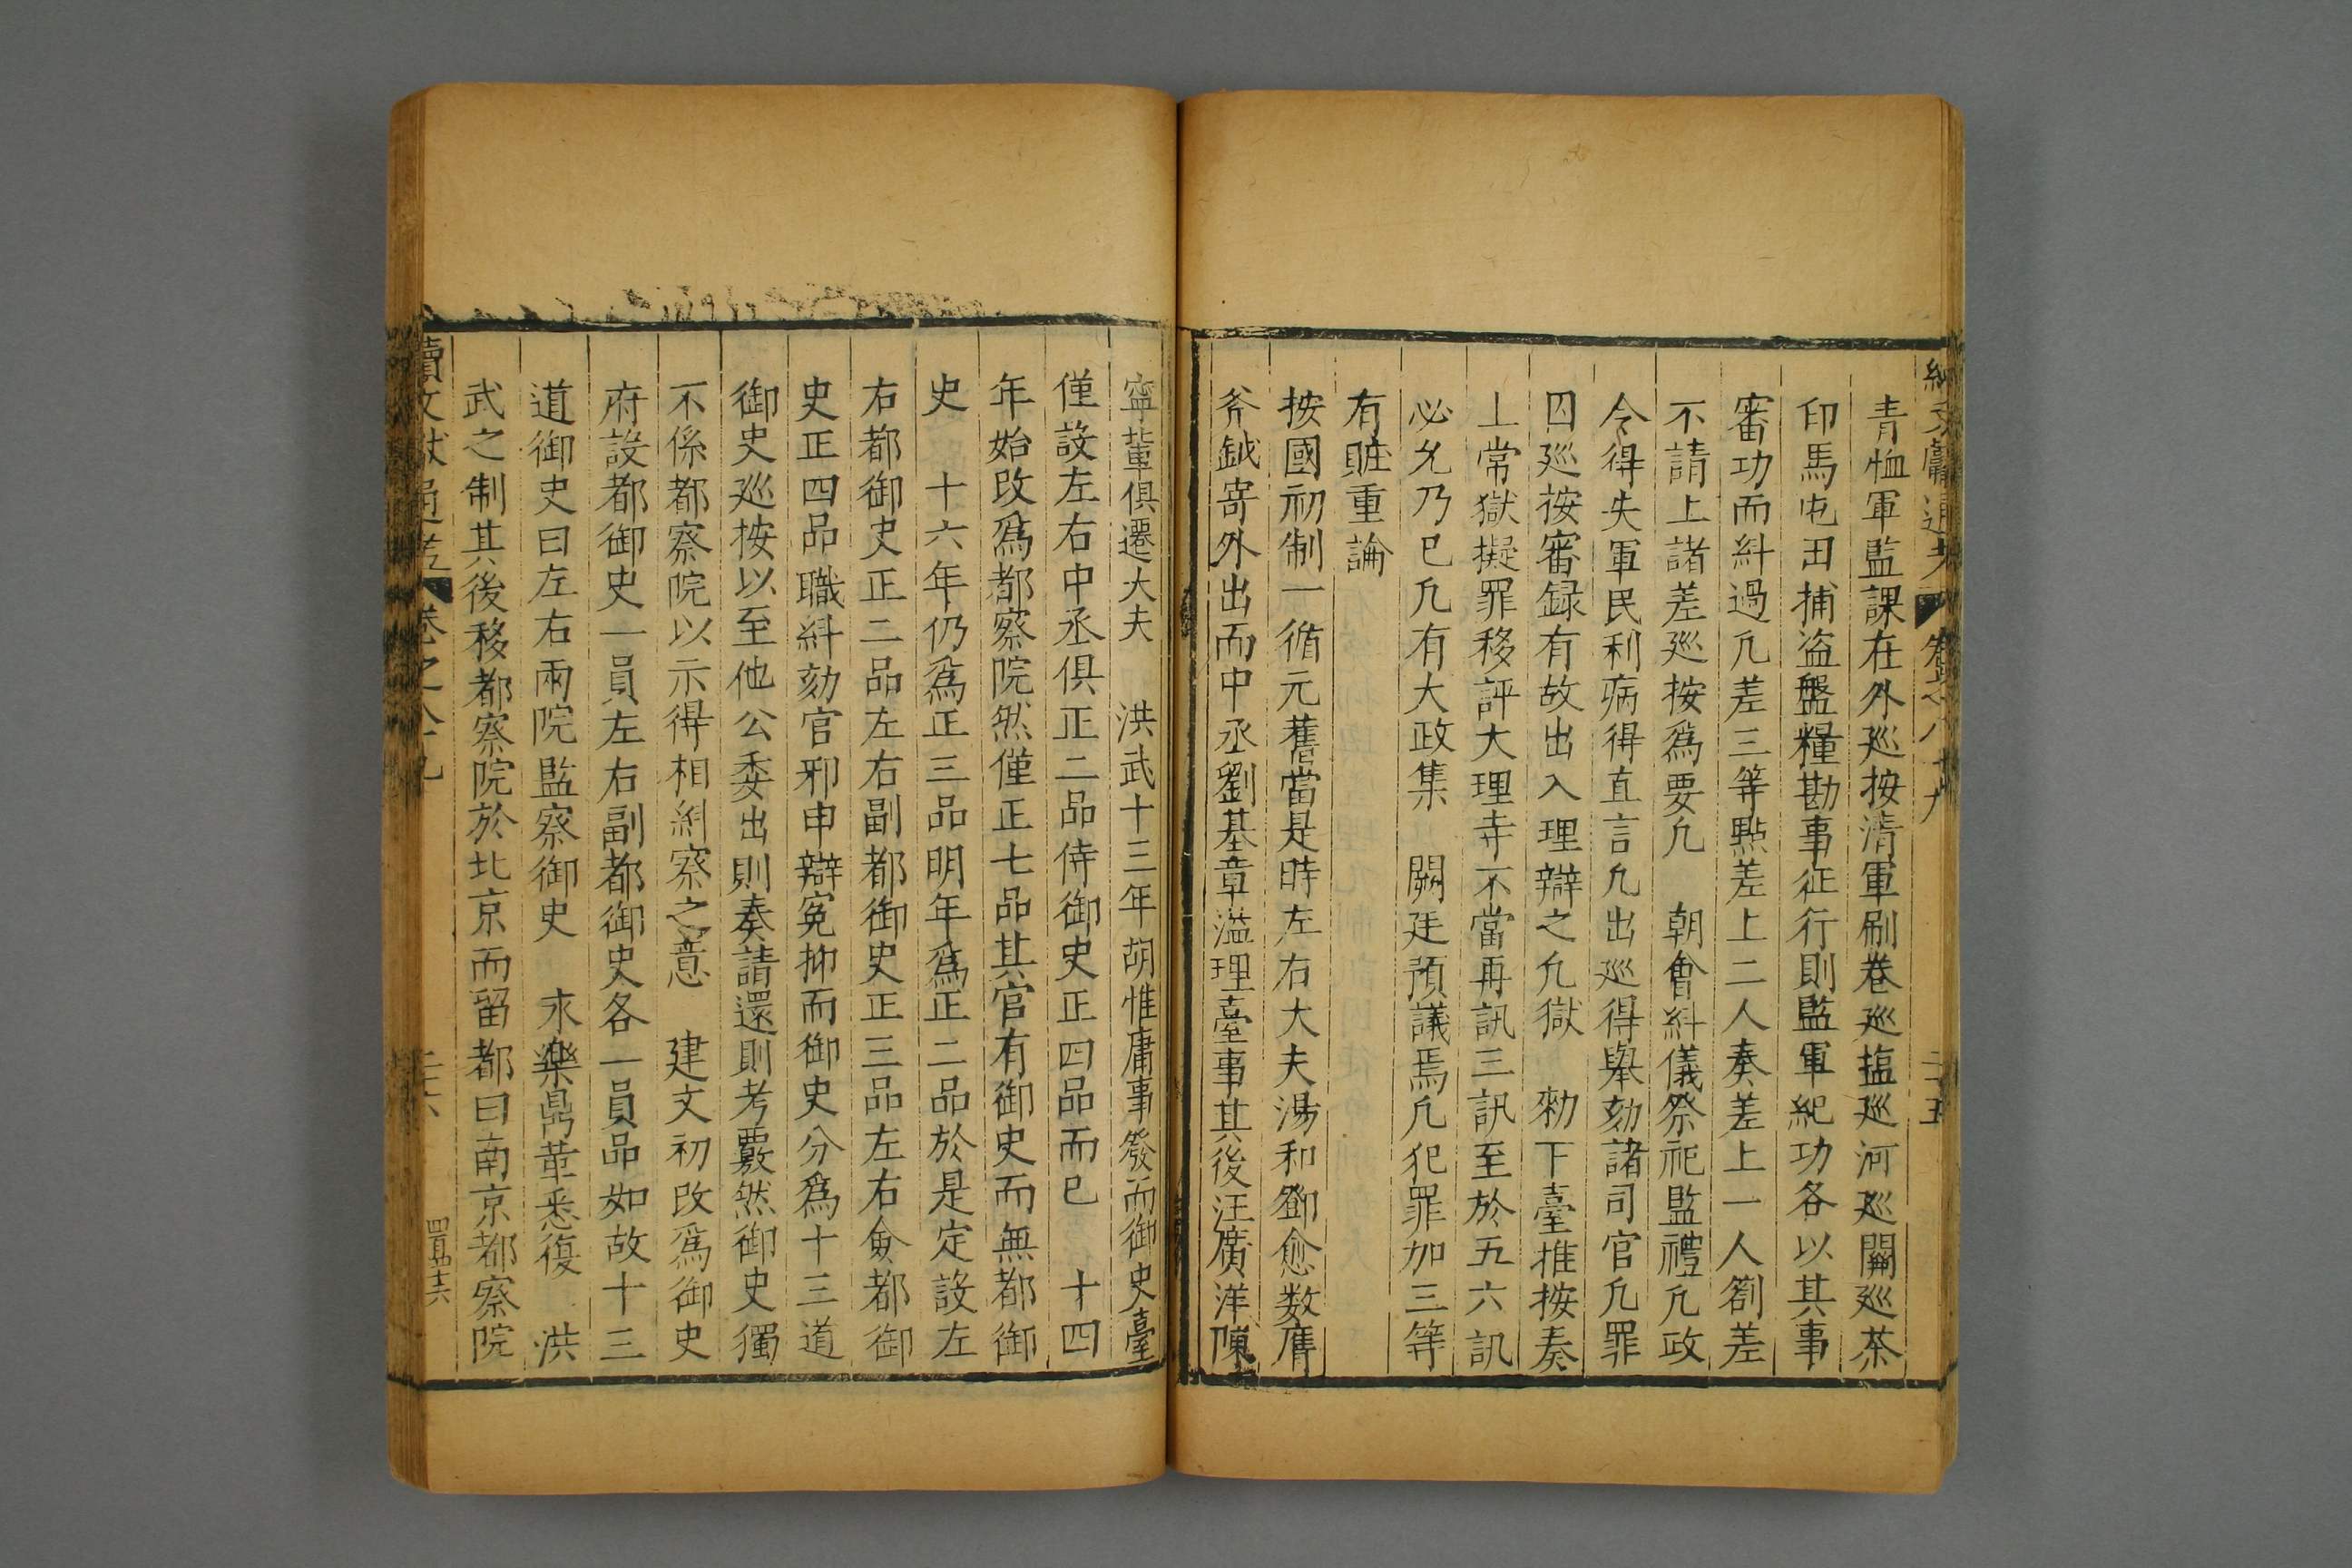 續文獻通考 卷之八十九 二十五
青恤軍監課在外巡按清軍刷卷巡塩巡河巡關巡茶
印馬屯田捕盗盤糧勘事征行則監軍紀功各以其事
審功而糾過凡差三等㸃差上二人奏差上一人劄差
不請上諸差巡按爲要凡 朝會糾儀祭祀監禮凡政
令得失軍民利病得直言凡出巡得舉劾諸司官凡罪
囚巡按審録有故出入理辯之凡獄 勑下臺推按奏
上常獄擬罪移評大理寺不當再訊三訊至於五六訊
必允乃已凡有大政集 闕廷預議焉凡犯罪加三等
有賍重論
按國初制一循元舊當是時左右大夫湯和鄧愈数膺
斧鉞寄外出而中丞劉基章溢理臺事其後汪廣洋陳
寧輩俱遷大夫 洪武十三年胡惟庸事發而御史臺
僅設左右中丞俱正二品侍御史正四品而已 十四
年始改爲都察院然僅正七品其官有御史而無都御
史 十六年仍爲正三品明年爲正二品於是定設左
右都御史正二品左右副都御史正三品左右僉都御
史正四品職糾劾官邪申辯冤抑而御史分爲十三道
御史巡按以至他公委出則奏請還則考覈然御史獨
不係都察院以示得相糾察之意 建文初改爲御史
府設都御史一員左右副都御史各一員品如故十三
道御史曰左右兩院監察御史 永樂鼎革悉復 洪
武之制其後移都察院於北京而留都曰南京都察院
續文獻通考 卷之八十九 二十六